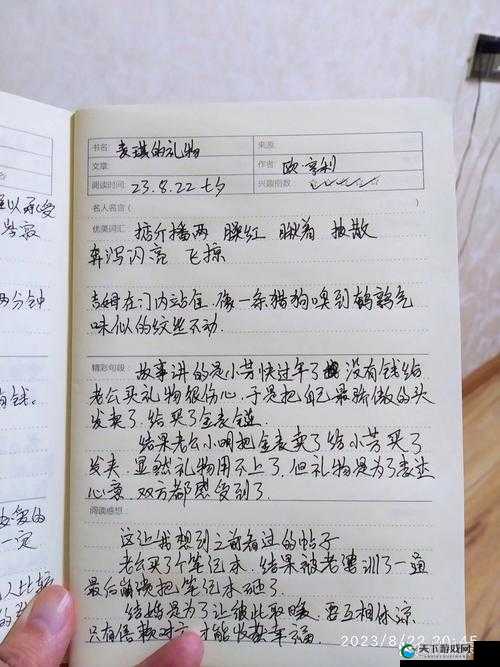 难以承受
书名 麦琪的礼物 来源
文章 作者 欧·亨利
阅读时间 23.8.22 七夕 兴趣指数
名人名言
优美词汇 掂斤播两 瞅着
奔泻闪亮 飞掠
两分钟
吉姆在门内站住,像一条猎狗嗅到鹌鹑气
味似的纹丝不动.
有钱。
精彩句段 故事讲的是小芳快过年了 没有钱给
老公买礼物很伤心,于是把自己最骄傲的头
发卖了,给买了金表链.
结果老公小明把金表卖了给小芳买了
发夹.显然礼物用不上了,但礼物是为了表达
心意,双方都感受到了.
一定
阅读感想
这让我想到之前看过的帖子
老公买了个笔记本,结果被老婆训了一通
最后崩溃把笔记本砸了.
结婚是为了让彼此取暖,要互相体谅
只有 对方 才能收获幸福.
2023/8/22 20:45
天下游戏网